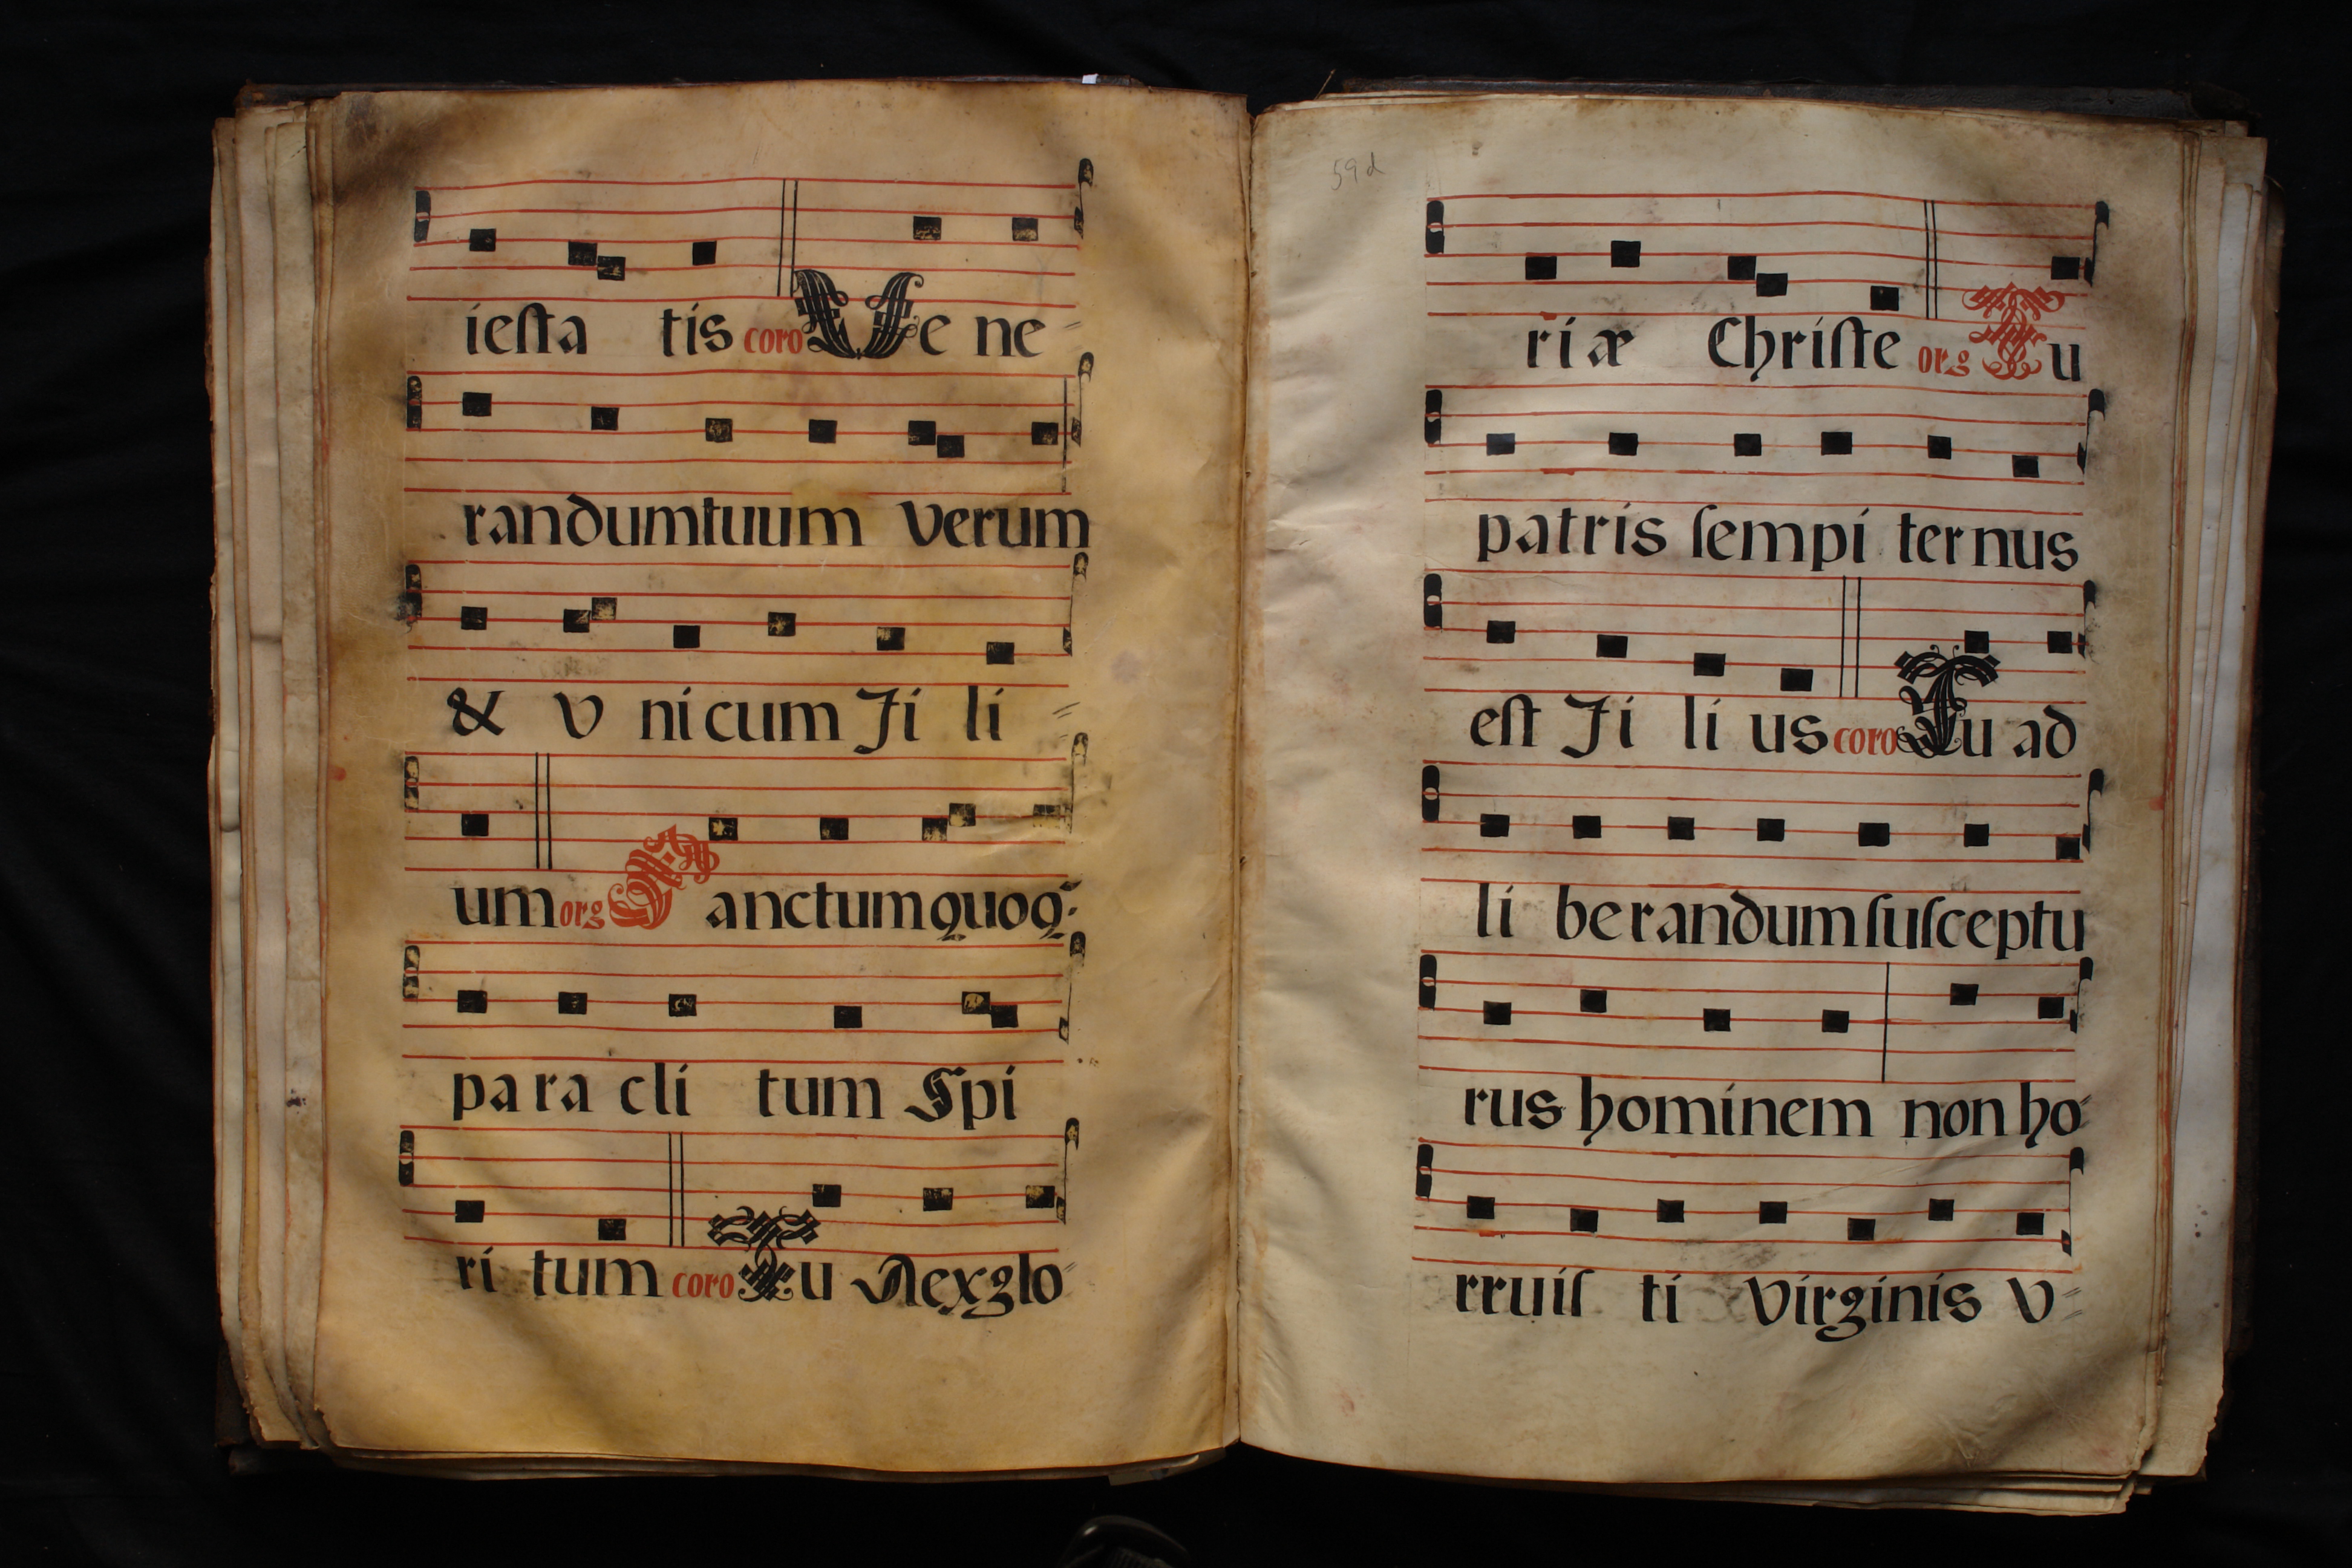 iesta tis coro Ve ne
randum tuum verum
& v nicum Fi li
um org Sanctum quoq;
para cli tum Spi
ri tum coro Tu Rex glo
59d
riæ Christe org Tu
patris sempi ternus
est Fi li us coro Tu ad
li berandum susceptu
rus hominem non ho
rruis ti virginis v